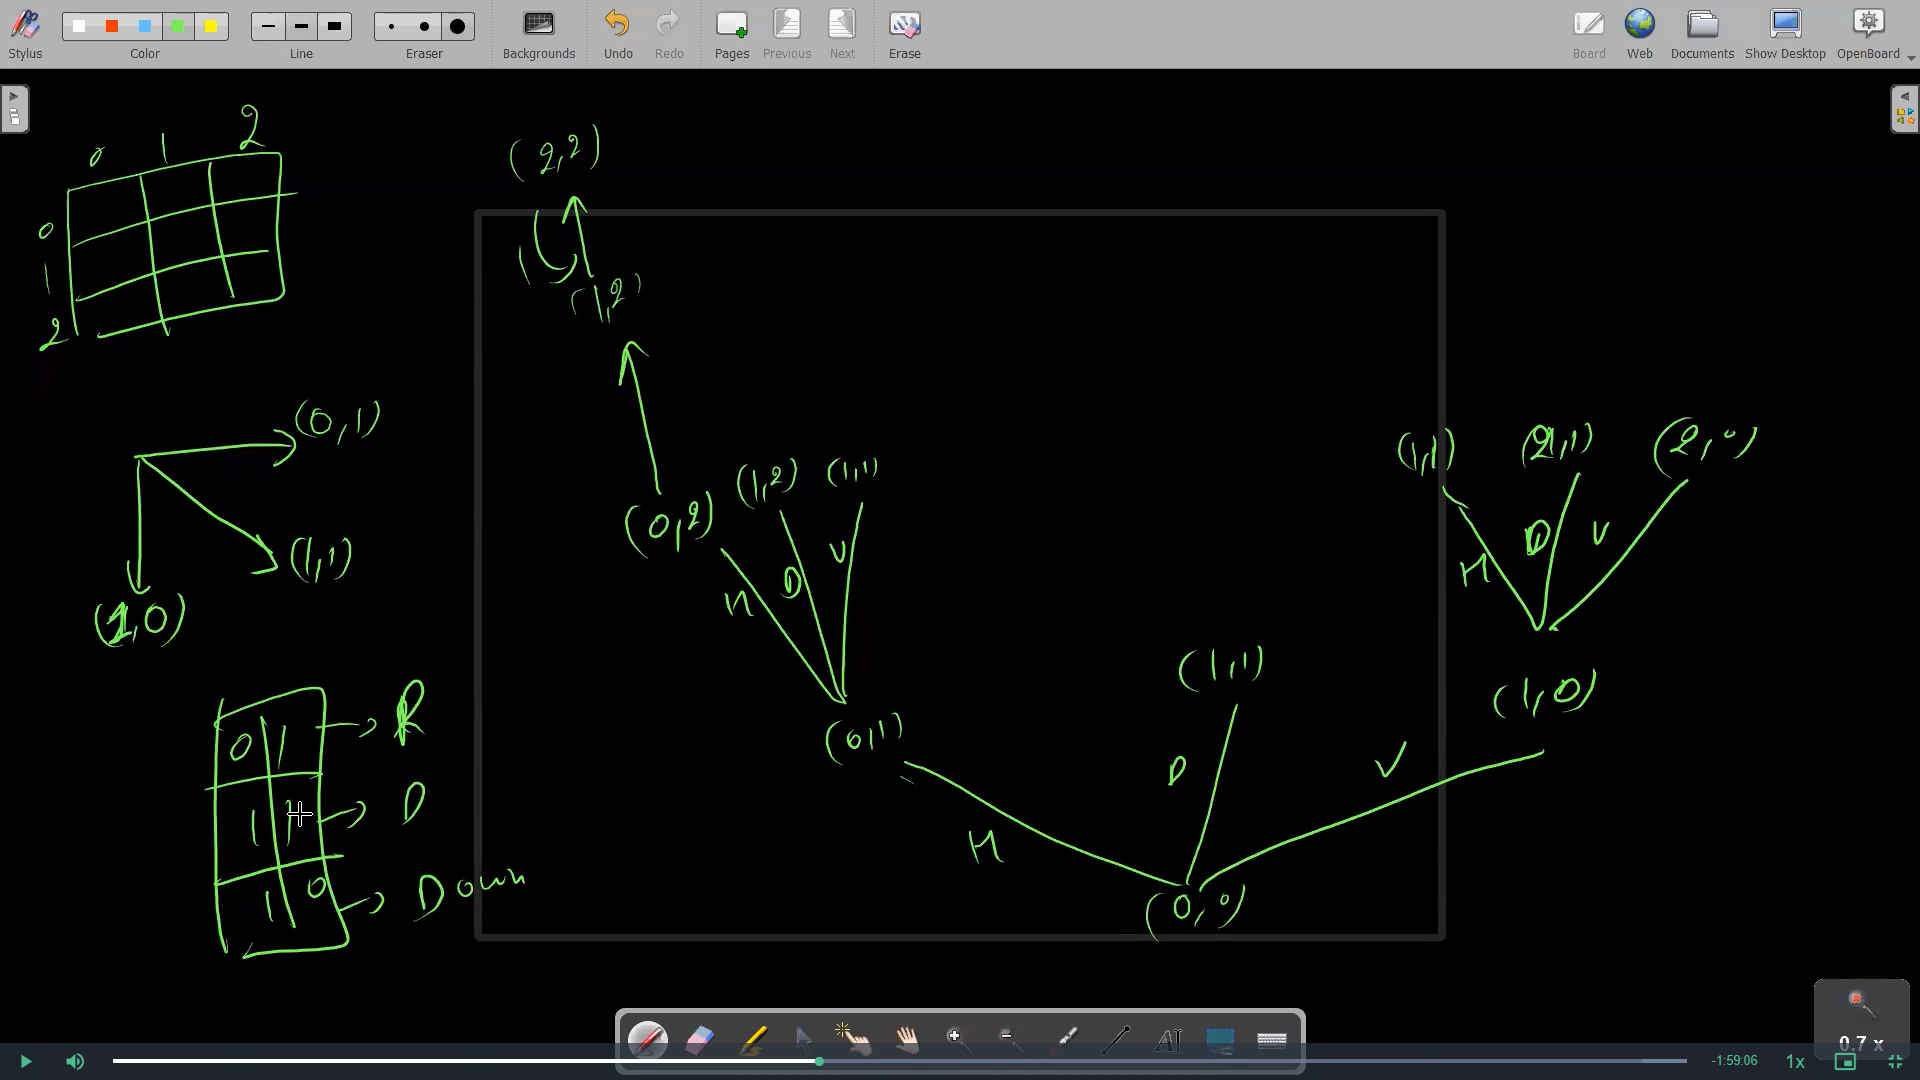 Stylus
Color
Line
Eraser
Backgrounds
Undo
Redo
Pages
Previous
Next
Erase
Board
Web
Documents
Show Desktop
OpenBoard
0 1 2
0
1
2
(0,1)
(1,1)
(1,0)
0 1 → R
1 1 → D
1 0 → Down
(2,2)
(1,2)
(0,2)
(1,2)
(1,1)
H
D
V
(0,1)
H
(1,1)
D
V
(0,0)
(1,1)
(2,1)
(2,0)
H
D
V
(1,0)
0.7 x
-1:59:06
1x